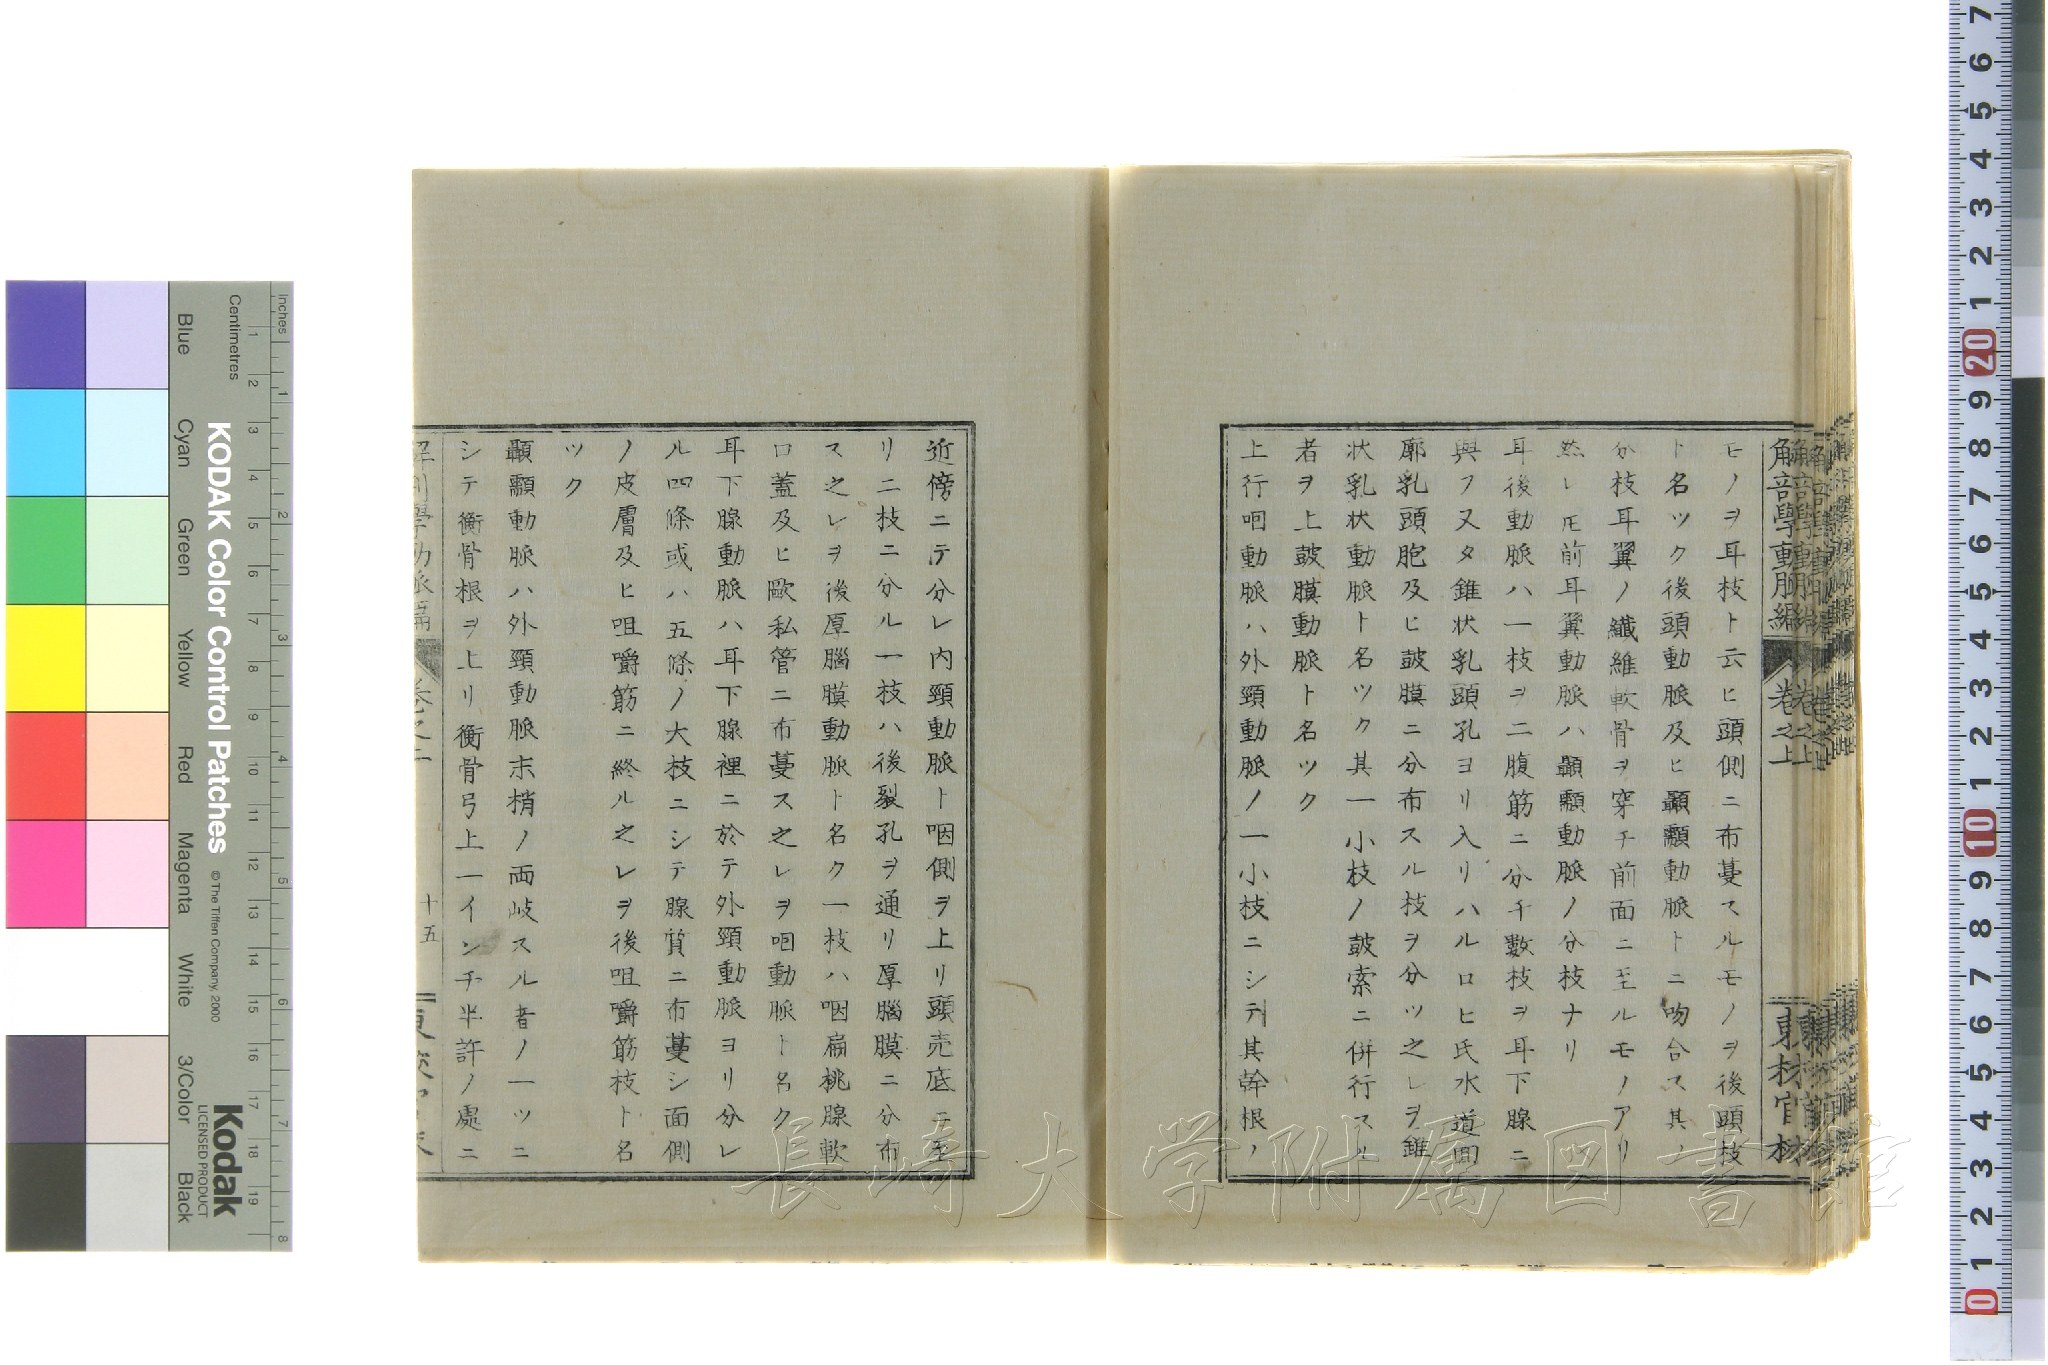 解剖學動脈編 卷之上 東材官材
モノヲ耳枝ト云ヒ頭側ニ布蔓スルモノヲ後頭枝
ト名ツク後頭動脈及ヒ顳顬動脈トニ吻合ス其ノ
分枝耳翼ノ纖維軟骨ヲ穿チ前面ニ至ルモノアリ
然レ𪜈前耳翼動脈ハ顳顬動脈ノ分枝ナリ
耳後動脈ハ一枝ヲ二腹筋ニ分チ數枝ヲ耳下腺ニ
與フ又タ錐状乳頭孔ヨリ入リハルロヒ氏水道回
廓乳頭胞及ヒ鼓膜ニ分布スル枝ヲ分ツ之レヲ錐
状乳状動脈ト名ツク其一小枝ノ鼓索ニ併行スル
者ヲ上鼓膜動脈ト名ツク
上行咽動脈ハ外頸動脈ノ一小枝ニシテ其幹根ノ
近傍ニテ分レ内頸動脈ト咽側ヲ上リ頭売底ニ至
リ二枝ニ分ル一枝ハ後裂孔ヲ通リ厚腦膜ニ分布
ス之レヲ後厚腦膜動脈ト名ク一枝ハ咽扁桃腺軟
口蓋及ヒ歐私管ニ布蔓ス之レヲ咽動脈ト名ク
耳下腺動脈ハ耳下腺裡ニ於テ外頸動脈ヨリ分レ
ル四條或ハ五條ノ大枝ニシテ腺質ニ布蔓シ面側
ノ皮膚及ヒ咀嚼筋ニ終ル之レヲ後咀嚼筋枝ト名
ツク
顳顬動脈ハ外頸動脈末梢ノ両岐スル者ノ一ツニ
シテ衡骨根ヲ上リ衡骨弓上一インチ半許ノ處ニ
解剖學動脈編 卷之上 十五
長崎大学附属図書館
KODAK Color Control Patches
© The Tiffen Company, 2000
Kodak
LICENSED PRODUCT
Inches
Centimetres
Blue Cyan Green Yellow Red Magenta White 3/Color Black